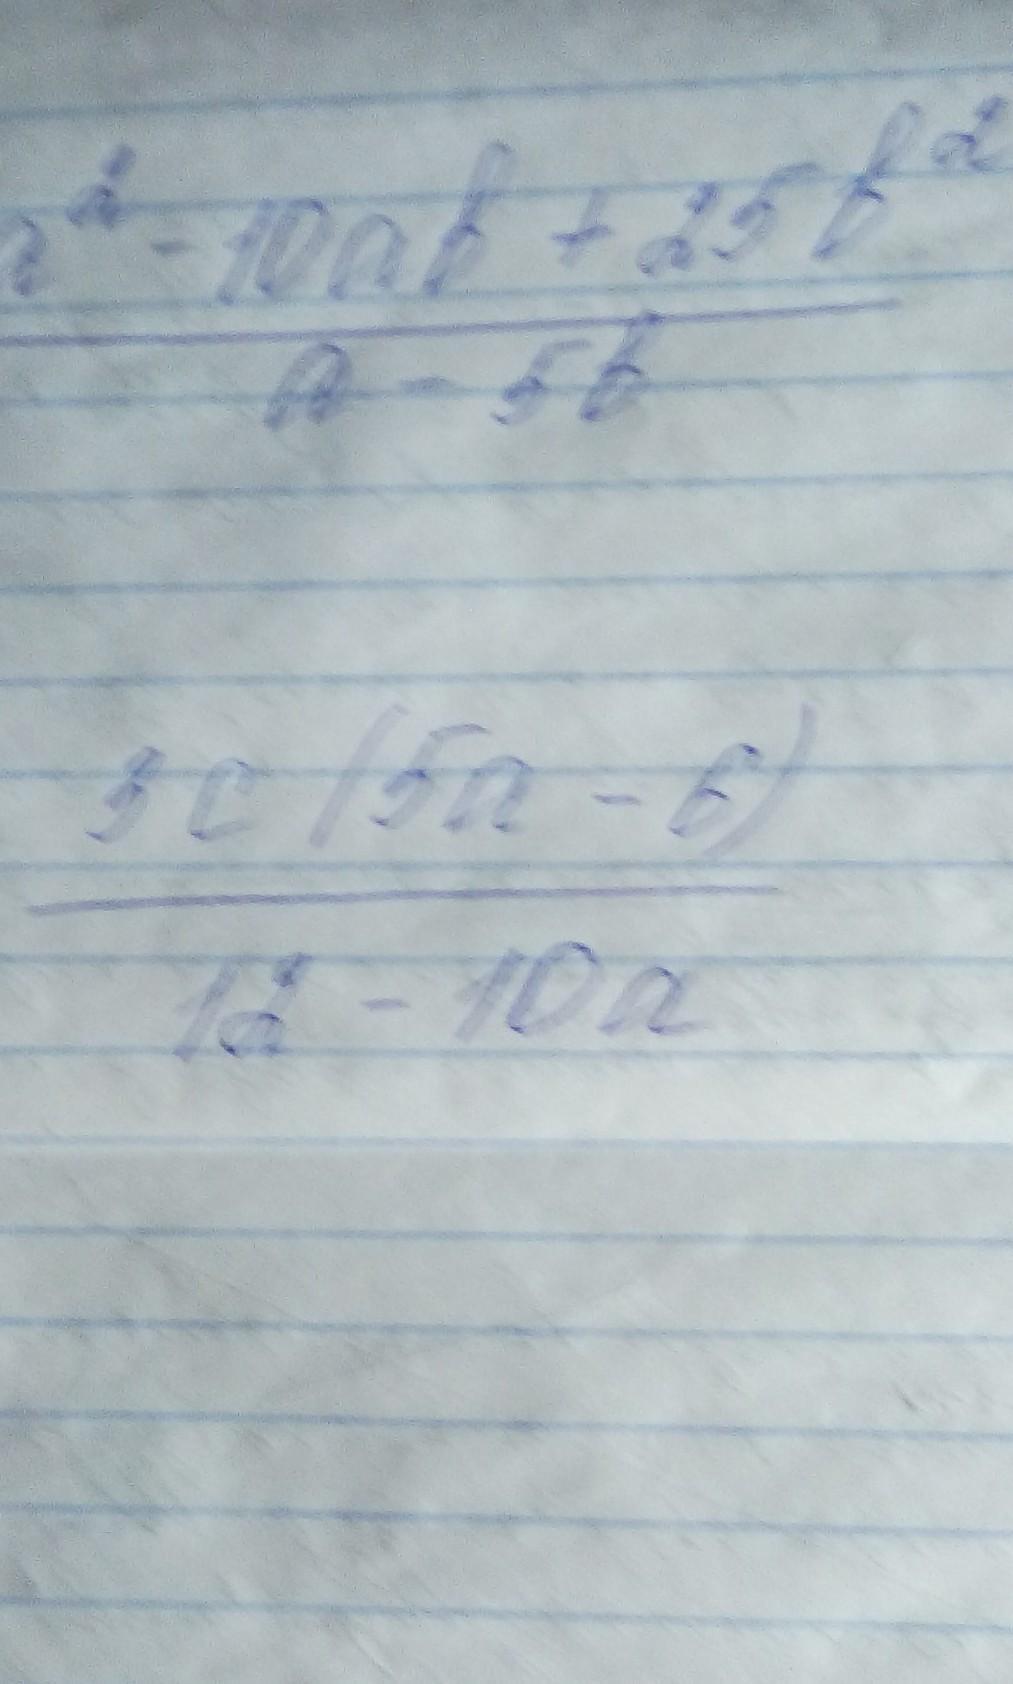 a² - 10ab + 25b²
a - 5b
3c(5a - 6)
12 - 10a